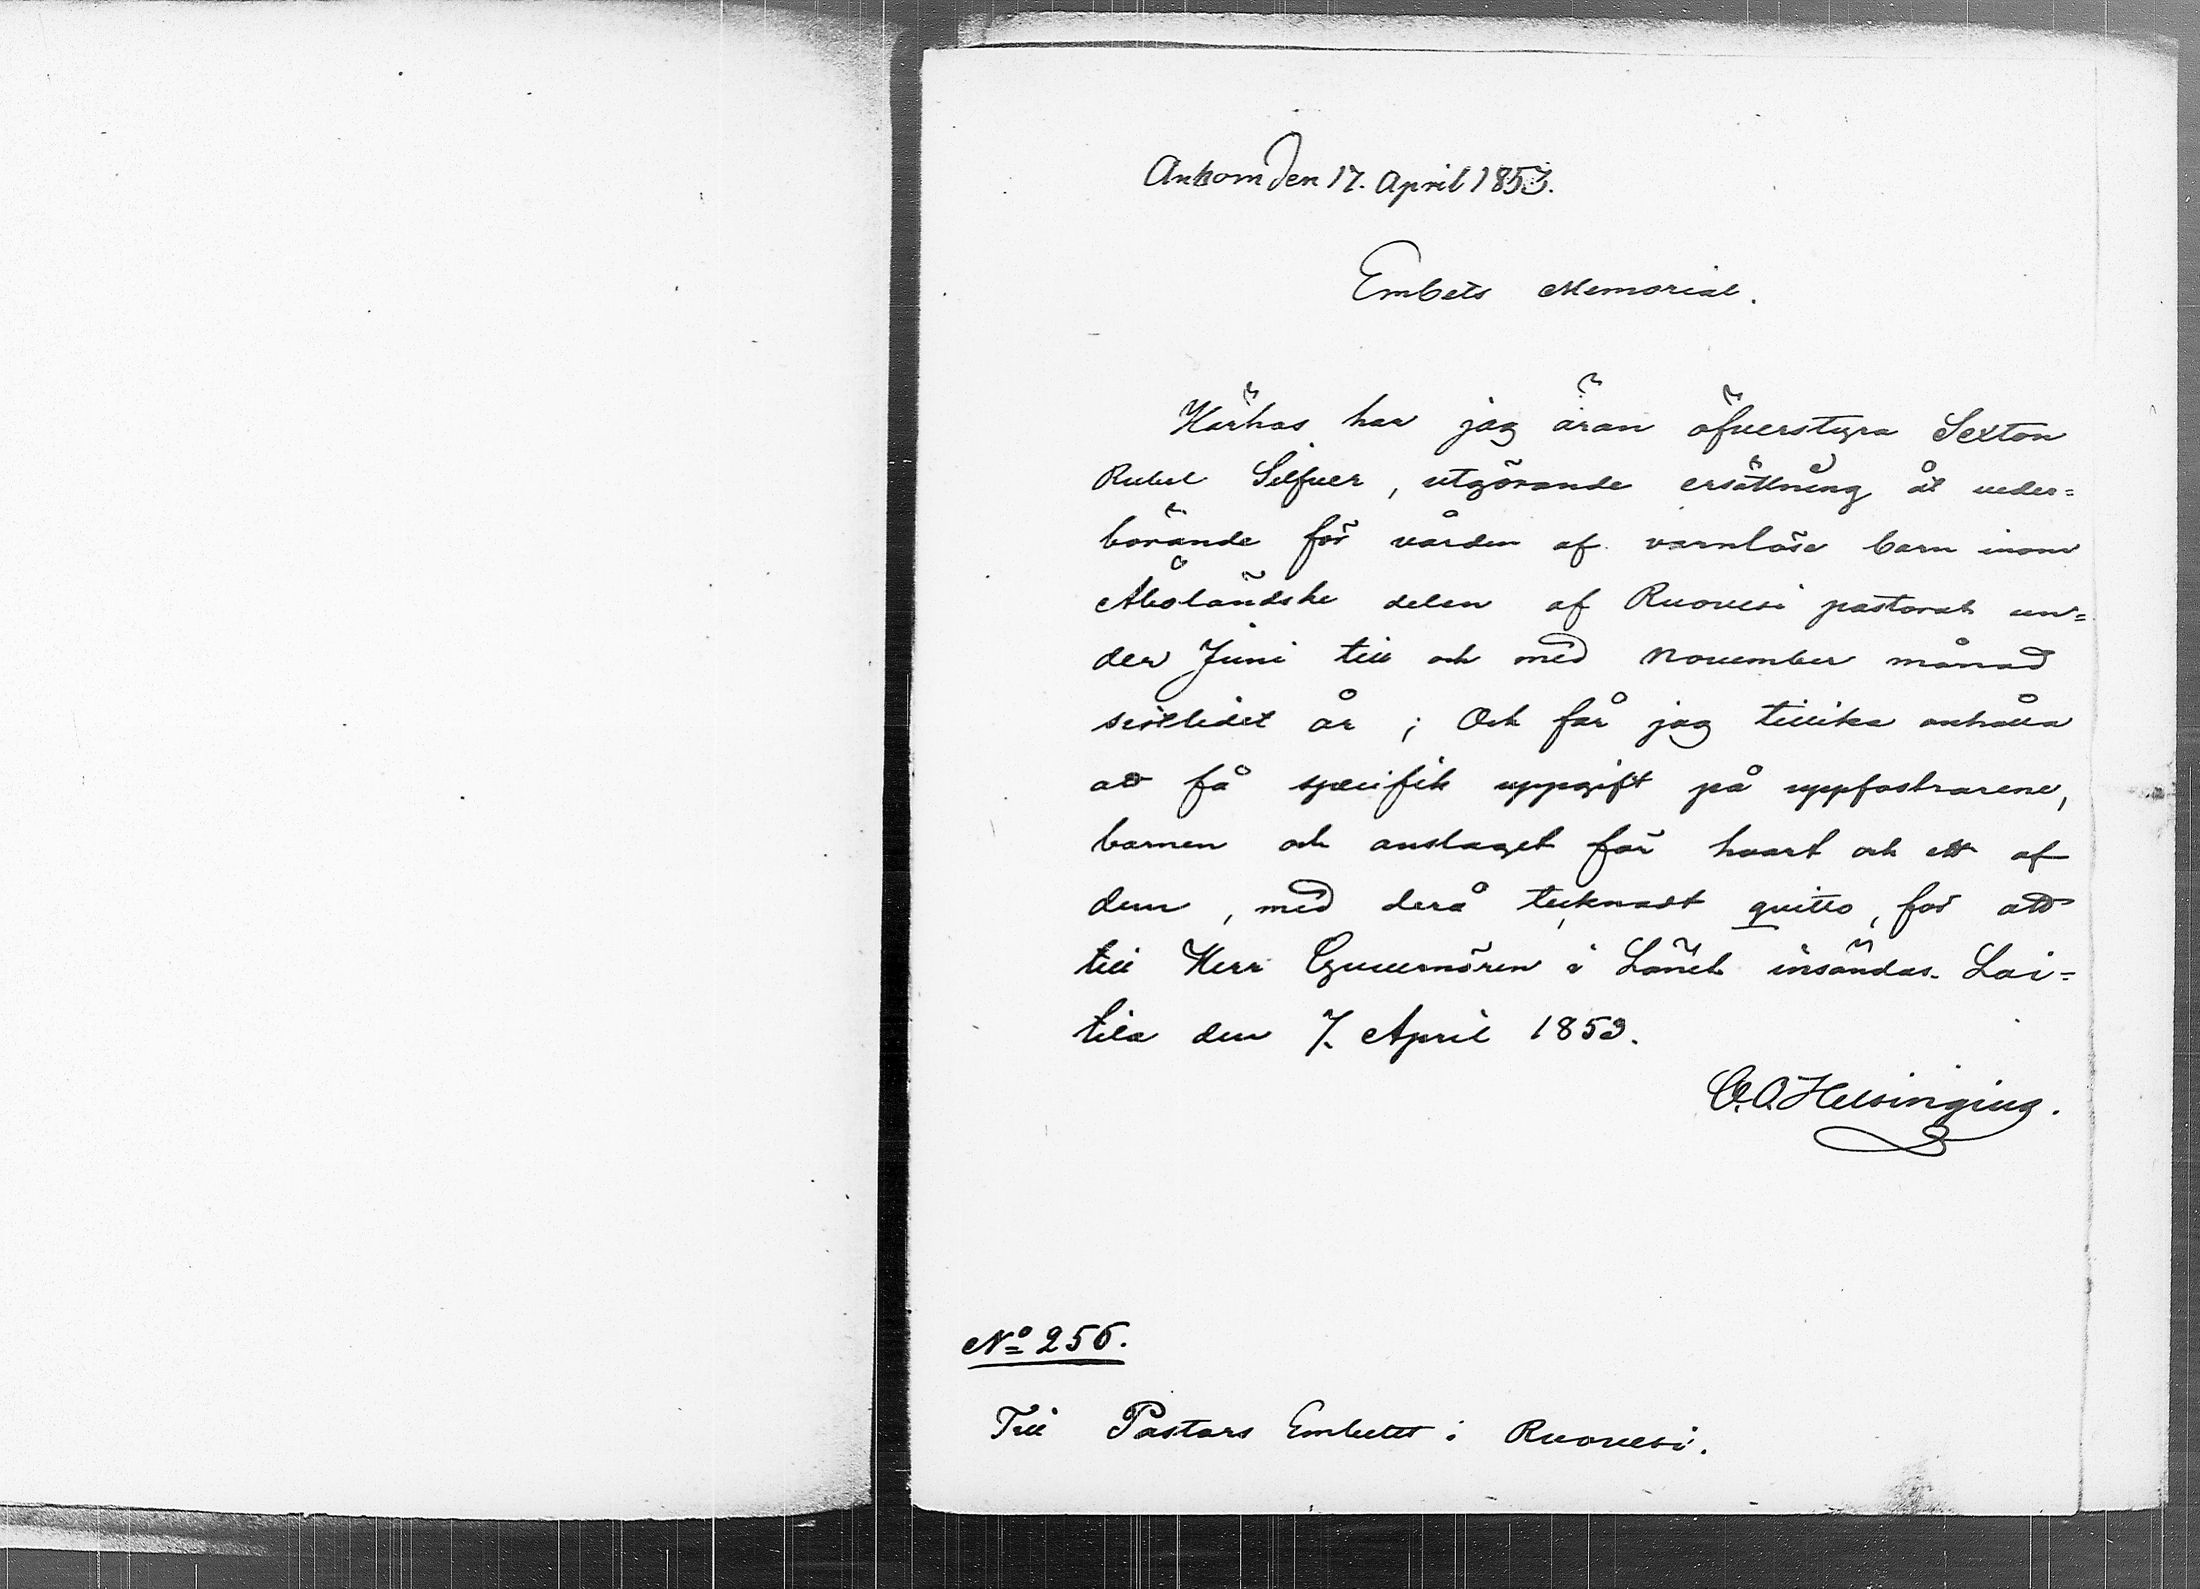 Ankom den 17. April 1853.
Embets Memorial.
Härhos har jag äran öfverstyra Sexton
Rubel Silfver, utgörande ersättning åt veder=
börande för vården af värnlöse barn inom
Åboländske delen af Ruovesi pastorat un=
der Juni till och med November månad
sistlidet år; Och får jag tillika anhålla
att få specifik uppgift på uppfostrarene,
barnen och anslaget för hvart och ett af
dem, med derå tecknadt quitto, för att
till Herr Guvernören i Länet insändas. Lai=
tila den 7. April 1853.
O. Helsingius.
No 256.
Till Pastors Embetet i Ruovesi.